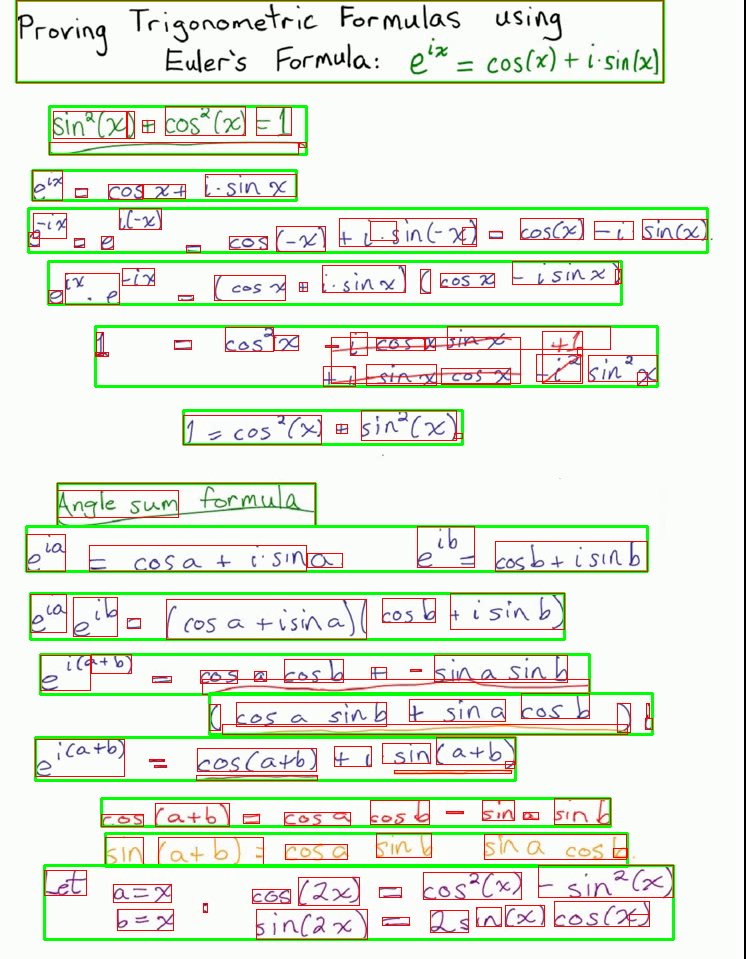 Proving Trigonometric Formulas using
Euler's Formula: e^{ix} = cos(x) + i·sin(x)
sin²(x) + cos²(x) = 1
e^{ix} = cos x + i·sin x
e^{-ix} = e^{i(-x)} = cos(-x) + i·sin(-x) = cos(x) - i sin(x).
e^{ix} · e^{-ix} = (cos x + i·sin x) (cos x - i sin x)
1 = cos² x - i cos x sin x +1
+ i sin x cos x - i² sin² x
1 = cos²(x) + sin²(x)
Angle sum formula
e^{ia} = cos a + i·sin a e^{ib} = cos b + i sin b
e^{ia} e^{ib} = (cos a + i sin a)(cos b + i sin b)
e^{i(a+b)} = cos a cos b + - sin a sin b
(cos a sin b + sin a cos b) i
e^{i(a+b)} = cos(a+b) + i sin(a+b)
cos(a+b) = cos a cos b - sin a sin b
sin(a+b) = cos a sin b sin a cos b.
Let a=x : cos(2x) = cos²(x) - sin²(x)
b=x sin(2x) = 2 s in(x) cos(x)